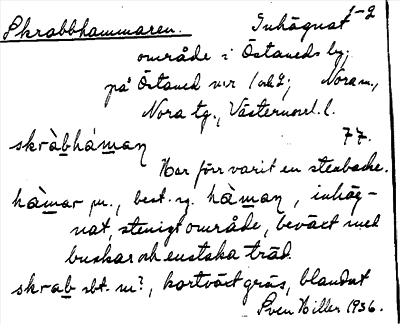 1-2
Skrabbhammaren. Inhägnat
område i Östaneds by,
på Östaned nr 1 och 2; Nora sn,
Nora tg., Västernorrl. l.
skràbháman 77.
Har förr varit en stenbacke.
hàmar m., best. sg. hàman, inhäg-
nat, stenigt område, beväxt med
buskar och enstaka träd.
skrab sbt. m?, kortväxt gräs, blandat
Sven Hiller 1936.